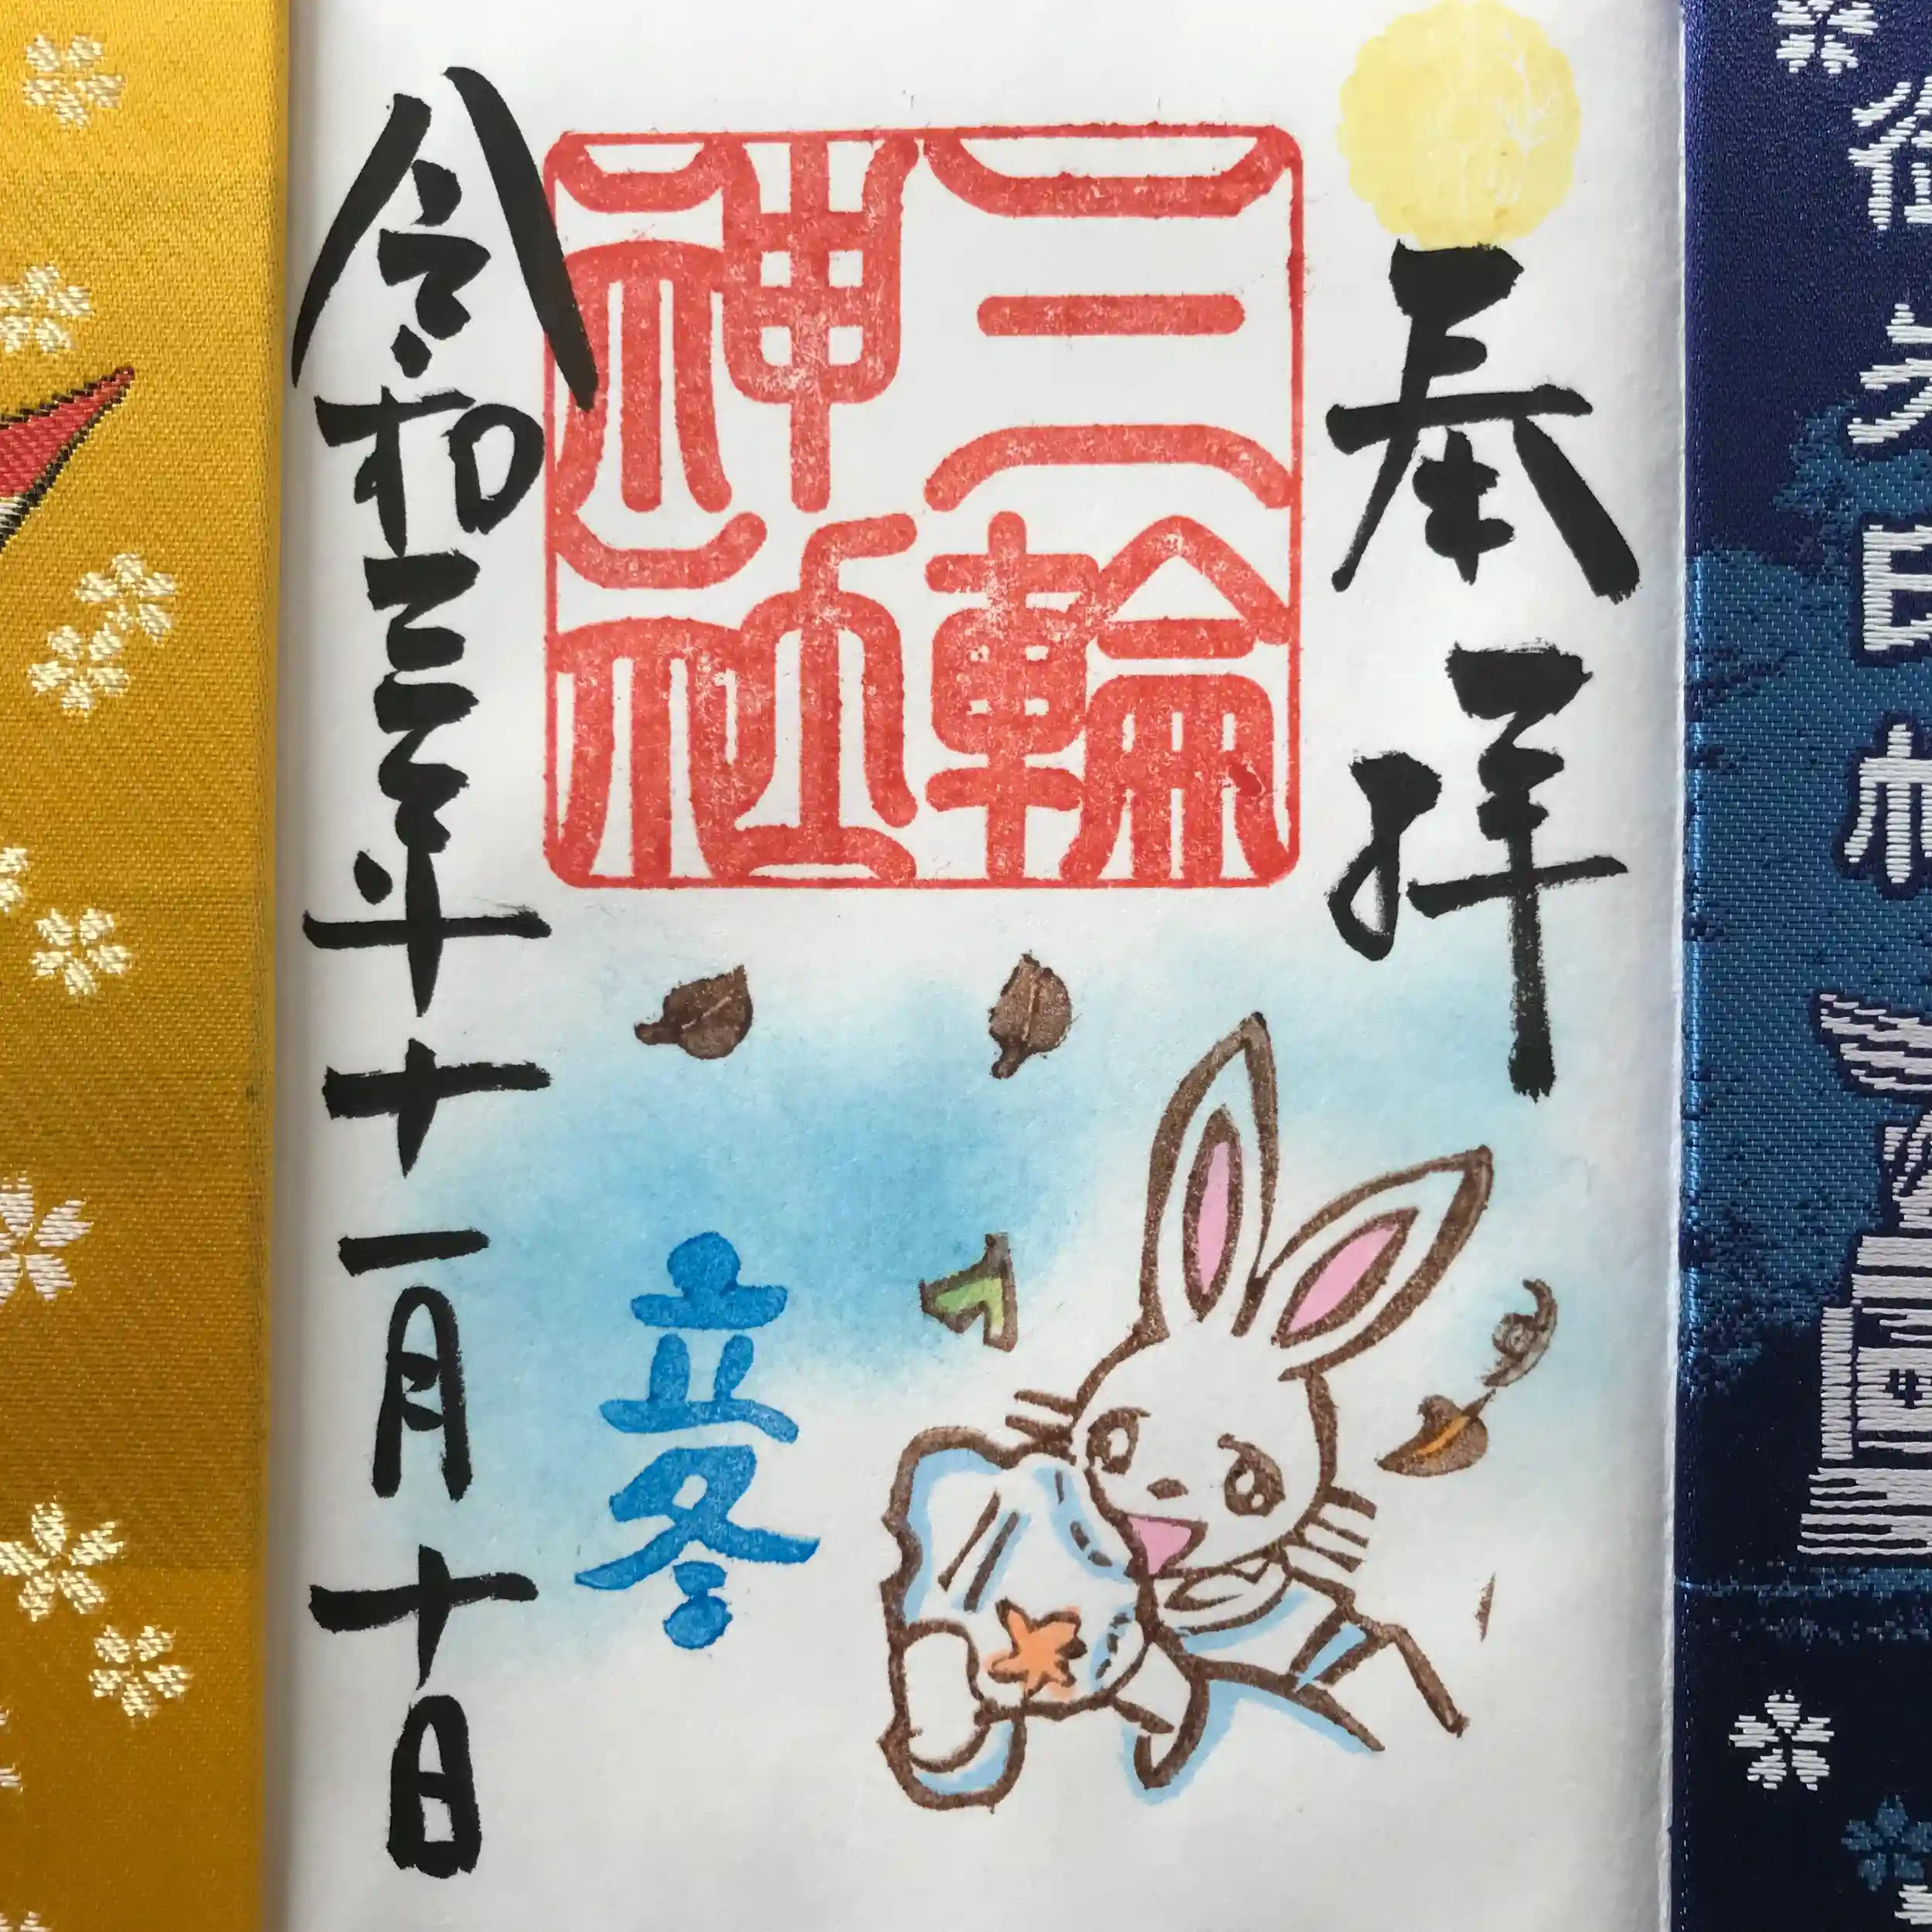 奉拝
三輪
神社
立冬
令和三年十一月十日
御朱印